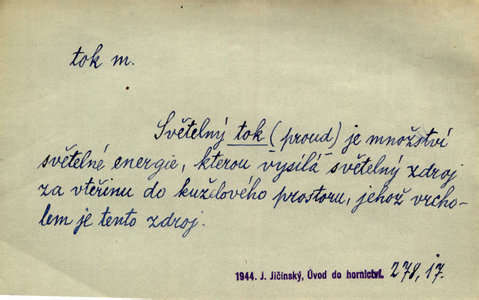 tok m.
Světelný tok (proud) je množství
světelné energie, kterou vysílá světelný zdroj
za vteřinu do kuželového prostoru, jehož vrcho-
lem je tento zdroj.
1944. J. Jičínský, Úvod do hornictví. 278, 17.